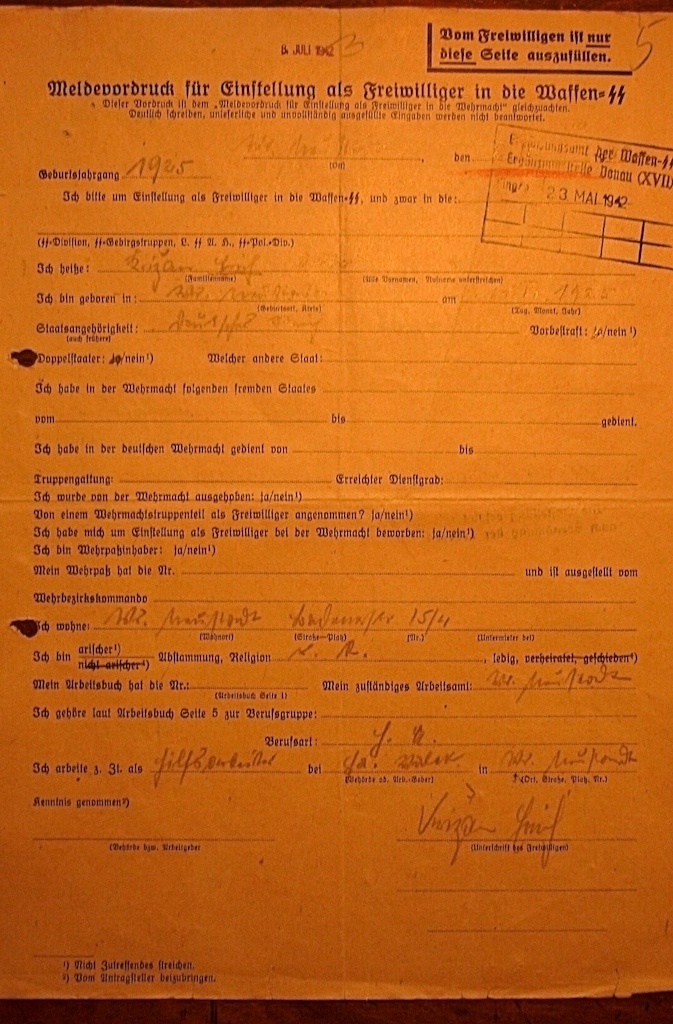 8. JULI 1942
5
Vom Freiwilligen ist nur
diese Seite auszufüllen.
Meldevordruck für Einstellung als Freiwilliger in die Waffen-SS
Dieser Vordruck ist dem „Meldevordruck für Einstellung als Freiwilliger in die Wehrmacht" gleichzuachten.
Deutlich schreiben, unleserliche und unvollständig ausgefüllte Eingaben werden nicht beantwortet.
, den
(Ort)
Ergänzungsamt der Waffen-SS
Ergänzungsstelle Donau (XVII)
23 MAI 1942
Geburtsjahrgang 1925
Ich bitte um Einstellung als Freiwilliger in die Waffen-SS, und zwar in die:
(SS-Division, SS-Gebirgstruppen, L. SS A. H., SS-Pol.-Div.)
Ich heiße:
(Familienname) (Alle Vornamen, Rufname unterstreichen)
Ich bin geboren in: Wr. Neustadt am 1925
(Geburtsort, Kreis) (Tag, Monat, Jahr)
Staatsangehörigkeit: Vorbestraft: ja/nein¹)
(auch frühere)
Doppelstaater: ja/nein¹) Welcher andere Staat:
Ich habe in der Wehrmacht folgenden fremden Staates
vom bis gedient.
Ich habe in der deutschen Wehrmacht gedient von bis
Truppengattung: Erreichter Dienstgrad:
Ich wurde von der Wehrmacht ausgehoben: ja/nein¹)
Von einem Wehrmachtstruppenteil als Freiwilliger angenommen? ja/nein¹)
Ich habe mich um Einstellung als Freiwilliger bei der Wehrmacht beworben: ja/nein¹)
Ich bin Wehrpaßinhaber: ja/nein¹)
Mein Wehrpaß hat die Nr. und ist ausgestellt vom
Wehrbezirkskommando
Ich wohne: Wr. Neustadt 15/4
(Wohnort) (Straße—Platz) (Nr.) (Untermieter bei)
Ich bin arischer¹)
nicht arischer¹) Abstammung, Religion r. k. , ledig, verheiratet, geschieden¹)
Mein Arbeitsbuch hat die Nr.: Mein zuständiges Arbeitsamt: Wr. Neustadt
(Arbeitsbuch Seite 1)
Ich gehöre laut Arbeitsbuch Seite 5 zur Berufsgruppe:
Berufsart:
Ich arbeite z. Zt. als Hilfsarbeiter bei Fa. in Wr. Neustadt
(Behörde od. Arb.-Geber) (Ort, Straße, Platz, Nr.)
Kenntnis genommen²)
(Behörde bzw. Arbeitgeber (Unterschrift des Freiwilligen)
¹) Nicht Zutreffendes streichen.
²) Vom Antragsteller beizubringen.